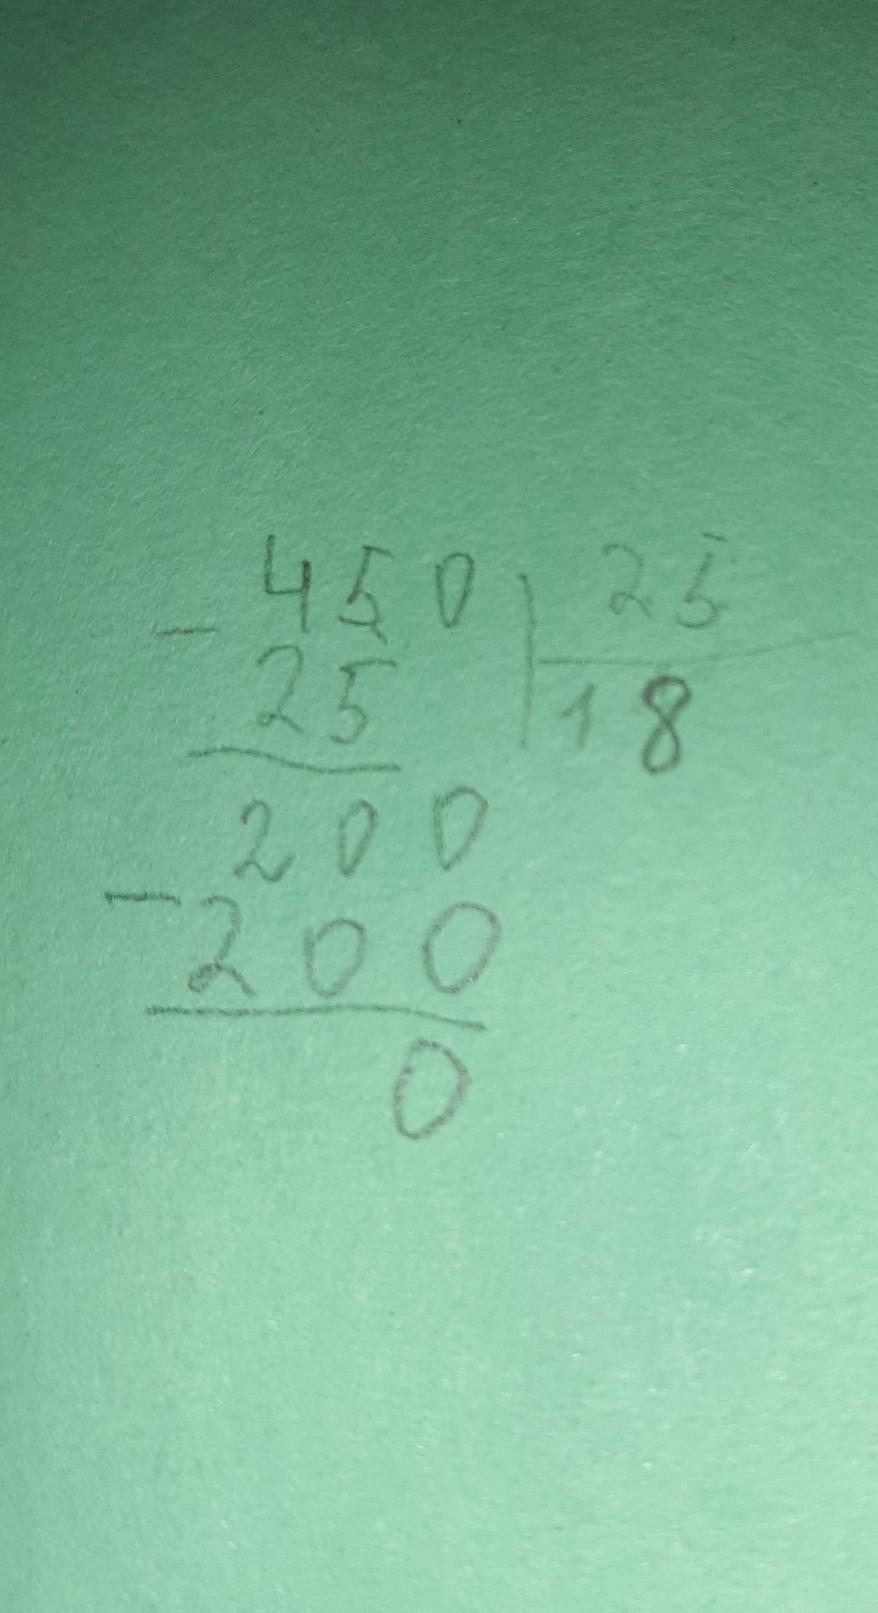 - 450 | 25
25 | 18
200
- 200
0